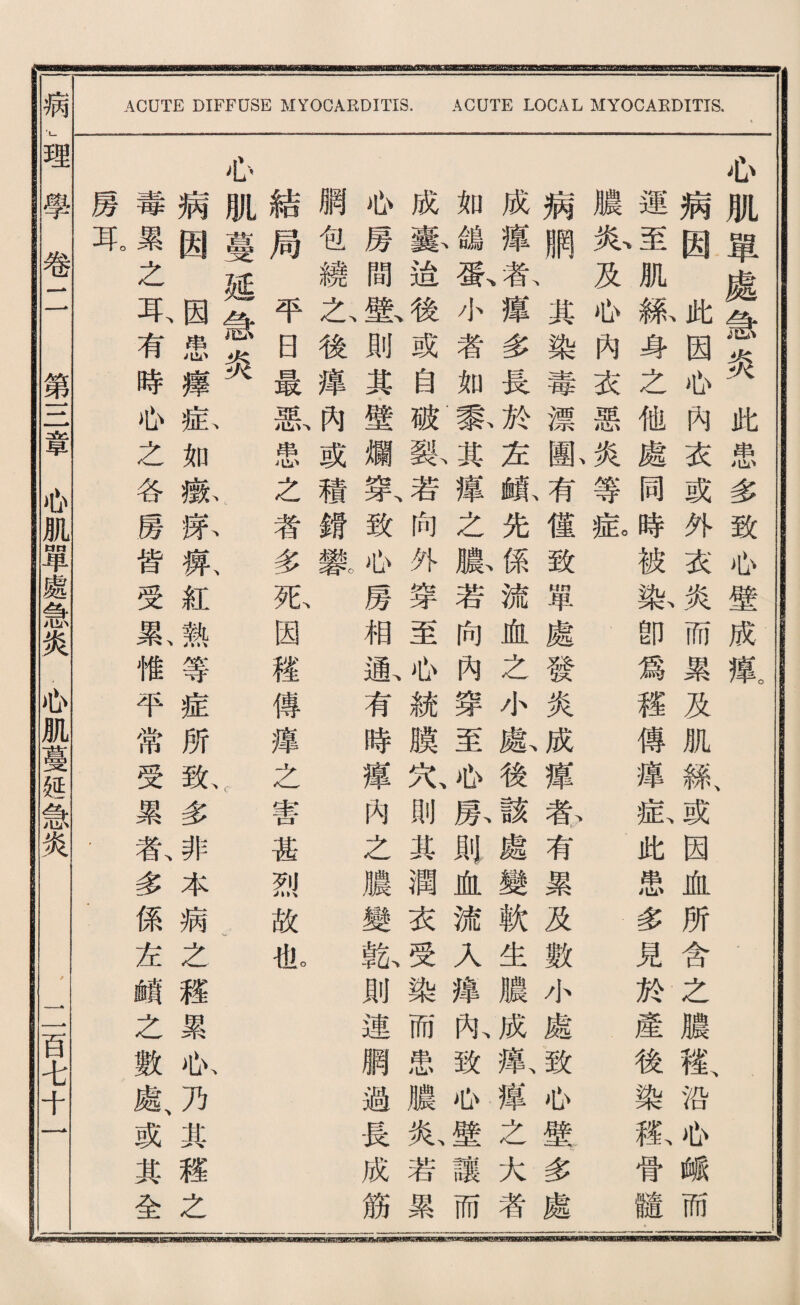 ACUTE DIFFUSE MYOCARDITIS. ACUTE LOCAL MYOCARDITIS.
心肌單處急炎 此患多致心壁成瘴。
病因 此因心內衣或外衣炎而累及肌絲、或因血所含之膿𤹛、沿心𧖴而
運至肌絲、身之他處同時被染、卽爲𤹛傳瘴症、此患多見於產後染𤹛、骨髓
膿炎、及心內衣惡炎等症。
病䐄 其染毒漂團、有僅致單處發炎成瘴者、有累及數小處致心壁多處
成瘴者、瘴多長於左䪼、先係流血之小處、後該處變軟生膿成瘴、瘴之大者
如鴿蛋、小者如黍、其瘴之膿、若向內穿至心房、則血流入瘴內、致心壁讓而
成囊、迨後或自破裂、若向外穿至心統膜穴、則其潤衣受染而患膿炎、若累
心房間壁、則其壁爛穿、致心房相通、有時瘴內之膿變乾、則連䐄過長成筋
䐄包繞之、後瘴內或積鏛礬。
結局 平日最惡、患之者多死、因𤹛傳瘴之害甚烈故也。
心肌蔓延急炎
病因 因患瘴症、如癥、痵、痹、紅熱等症所致、多非本病之𤹛累心、乃其𤹛之
毒累之耳、有時心之各房皆受累、惟平常受累者、多係左䪼之數處、或其全
房耳。
病理學 卷二 第三章 心肌單處急炎 心肌蔓延急炎 二百七十一